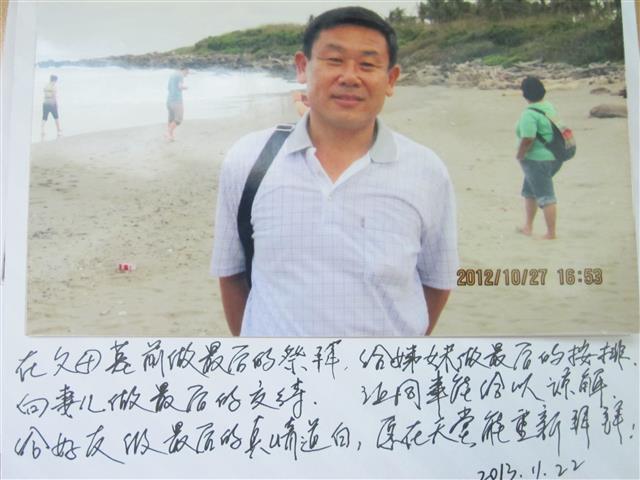 2012/10/27 16:53
在父母墓前做最后的祭拜,给姊妹做最后的按排.
向妻儿做最后的交待. 让同事能给以谅解.
给好友做最后的真情道白,原在天堂能重新拜拜!
2013.11.22